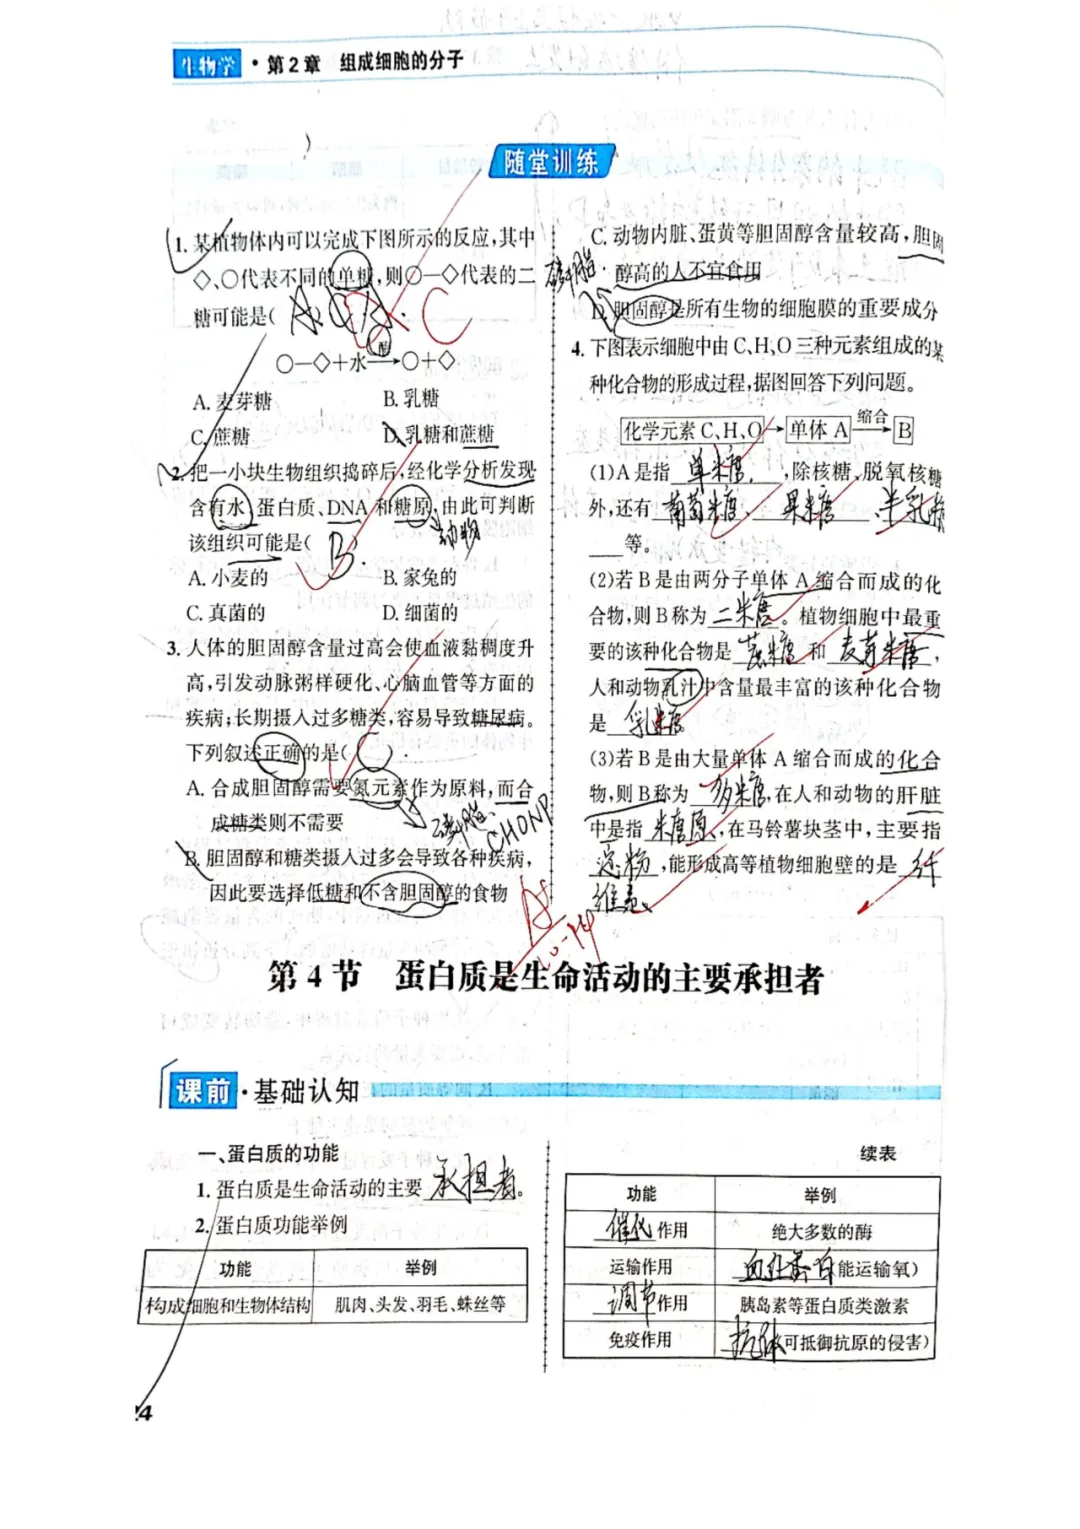 生物学 · 第2章 组成细胞的分子
随堂训练
1. 某植物体内可以完成下图所示的反应,其中
◇、○代表不同的单糖,则○—◇代表的二
糖可能是( A ) C
○—◇+水 酶→ ○+◇
A. 麦芽糖 B. 乳糖
C. 蔗糖 D. 乳糖和蔗糖
2. 把一小块生物组织捣碎后,经化学分析发现
含有水、蛋白质、DNA 和糖原,由此可判断
动物
该组织可能是( B )
A. 小麦的 B. 家兔的
C. 真菌的 D. 细菌的
3. 人体的胆固醇含量过高会使血液黏稠度升
高,引发动脉粥样硬化、心脑血管等方面的
疾病;长期摄入过多糖类,容易导致糖尿病。
下列叙述正确的是( )
A. 合成胆固醇需要氮元素作为原料,而合
成糖类则不需要
磷脂、CHONP
B. 胆固醇和糖类摄入过多会导致各种疾病,
因此要选择低糖和不含胆固醇的食物
C. 动物内脏、蛋黄等胆固醇含量较高,胆固
磷脂
醇高的人不宜食用
D. 胆固醇是所有生物的细胞膜的重要成分
4. 下图表示细胞中由 C、H、O 三种元素组成的某
种化合物的形成过程,据图回答下列问题。
化学元素 C、H、O → 单体 A 缩合→ B
(1)A 是指 单糖 ,除核糖、脱氧核糖
外,还有 葡萄糖 、 果糖 、 半乳糖
等。
(2)若 B 是由两分子单体 A 缩合而成的化
合物,则 B 称为 二糖 。植物细胞中最重
要的该种化合物是 蔗糖 和 麦芽糖 ,
人和动物乳汁中含量最丰富的该种化合物
是 乳糖 。
(3)若 B 是由大量单体 A 缩合而成的化合
物,则 B 称为 多糖 ,在人和动物的肝脏
中是指 糖原 ,在马铃薯块茎中,主要指
淀粉 ,能形成高等植物细胞壁的是 纤
维素 。
A
10-14
第 4 节 蛋白质是生命活动的主要承担者
课前 · 基础认知
一、蛋白质的功能
1. 蛋白质是生命活动的主要 承担者 。
2. 蛋白质功能举例
功能 举例
构成细胞和生物体结构 肌肉、头发、羽毛、蛛丝等
续表
功能 举例
催化 作用 绝大多数的酶
运输作用 血红蛋白 (能运输氧)
调节 作用 胰岛素等蛋白质类激素
免疫作用 抗体 (可抵御抗原的侵害)
24